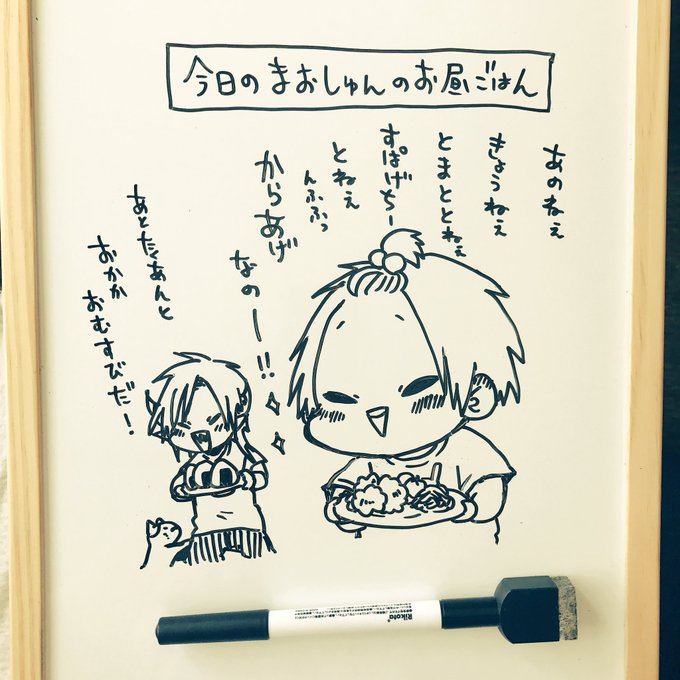 今日のまおしゅんのお昼ごはん
あのねぇ
きょうねぇ
とまととねぇ
すぱげちー
とねぇ
んふふっ
からあげ
なのー!!
あとたくあんと
おかか
おむすびだ!
Rikoto